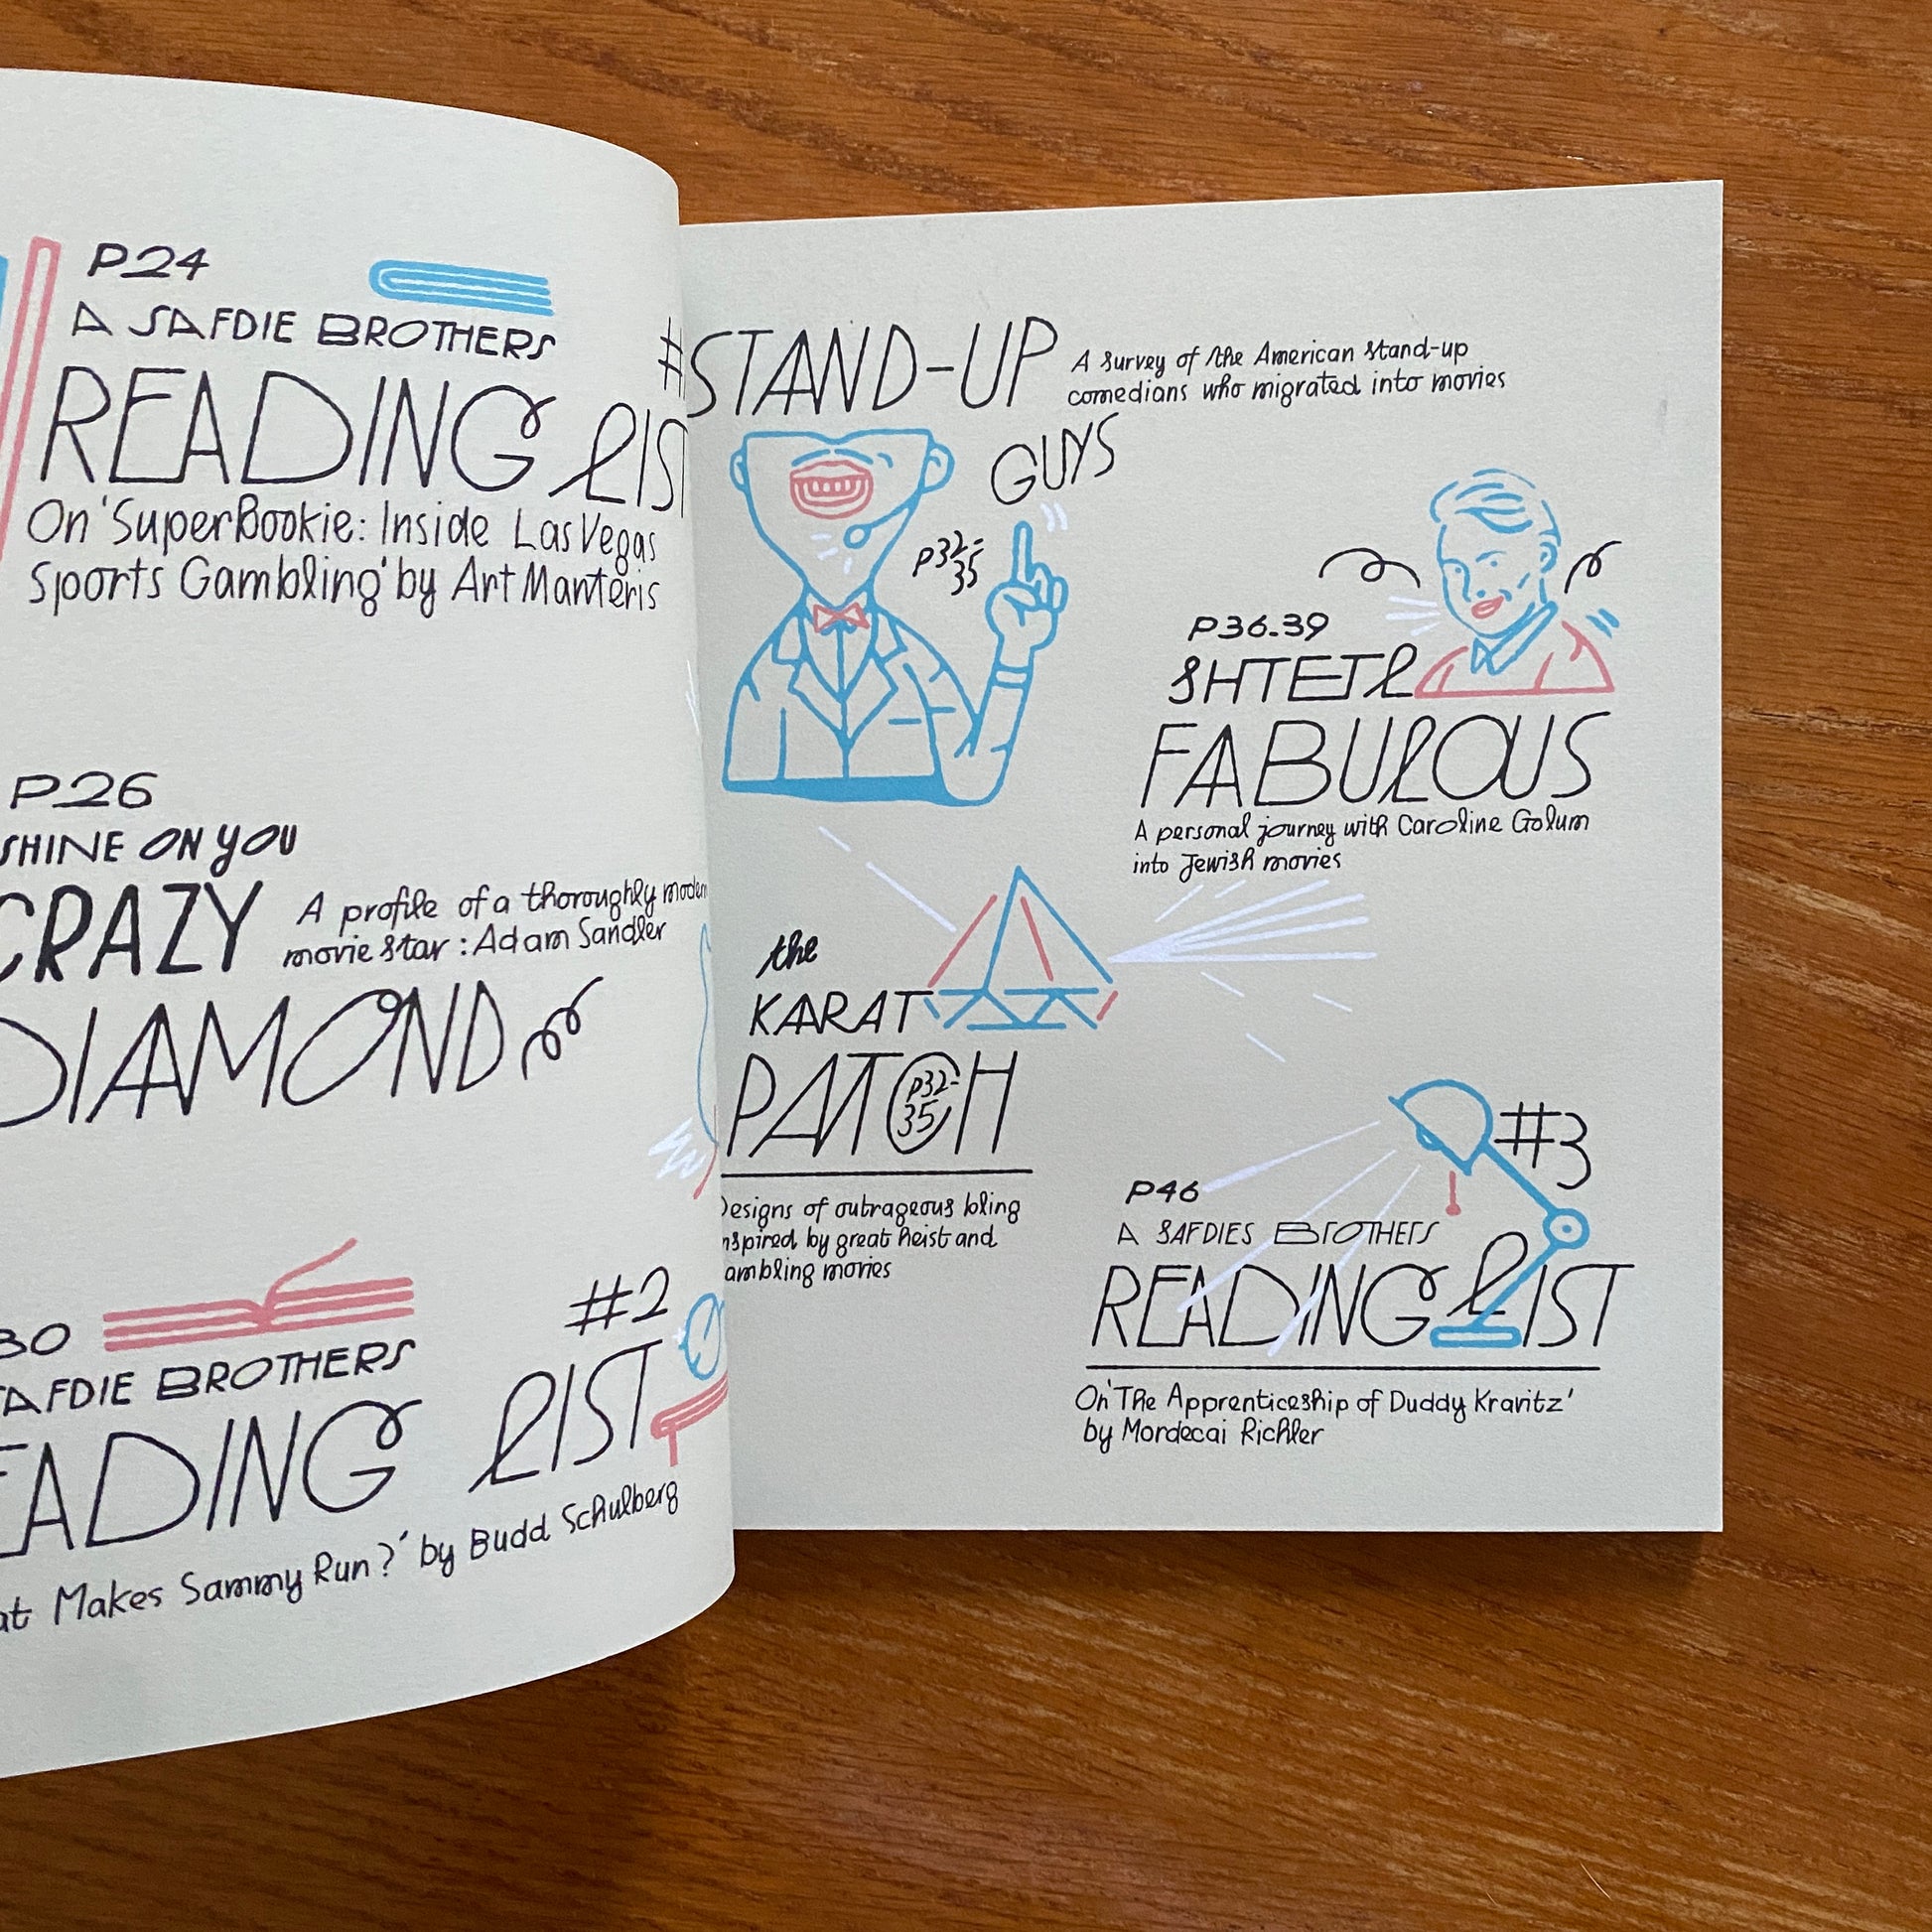 P24
A SAFDIE BROTHERS
READING LIST
On 'SuperBookie: Inside Las Vegas
Sports Gambling' by Art Manteris
#
P26
SHINE ON YOU
CRAZY
A profile of a thoroughly modern
movie star : Adam Sandler
DIAMOND
30
SAFDIE BROTHERS
#2
EADING LIST
at Makes Sammy Run?' by Budd Schulberg
STAND-UP
GUYS
A survey of the American stand-up
comedians who migrated into movies
P32-
35
P36-39
SHTETL
FABULOUS
A personal journey with Caroline Golum
into Jewish movies
the
KARAT
PATCH
P32-
35
Designs of outrageous bling
nspired by great heist and
ambling movies
#3
P46
A SAFDIES BROTHERS
READING LIST
On 'The Apprenticeship of Duddy Kravitz'
by Mordecai Richler